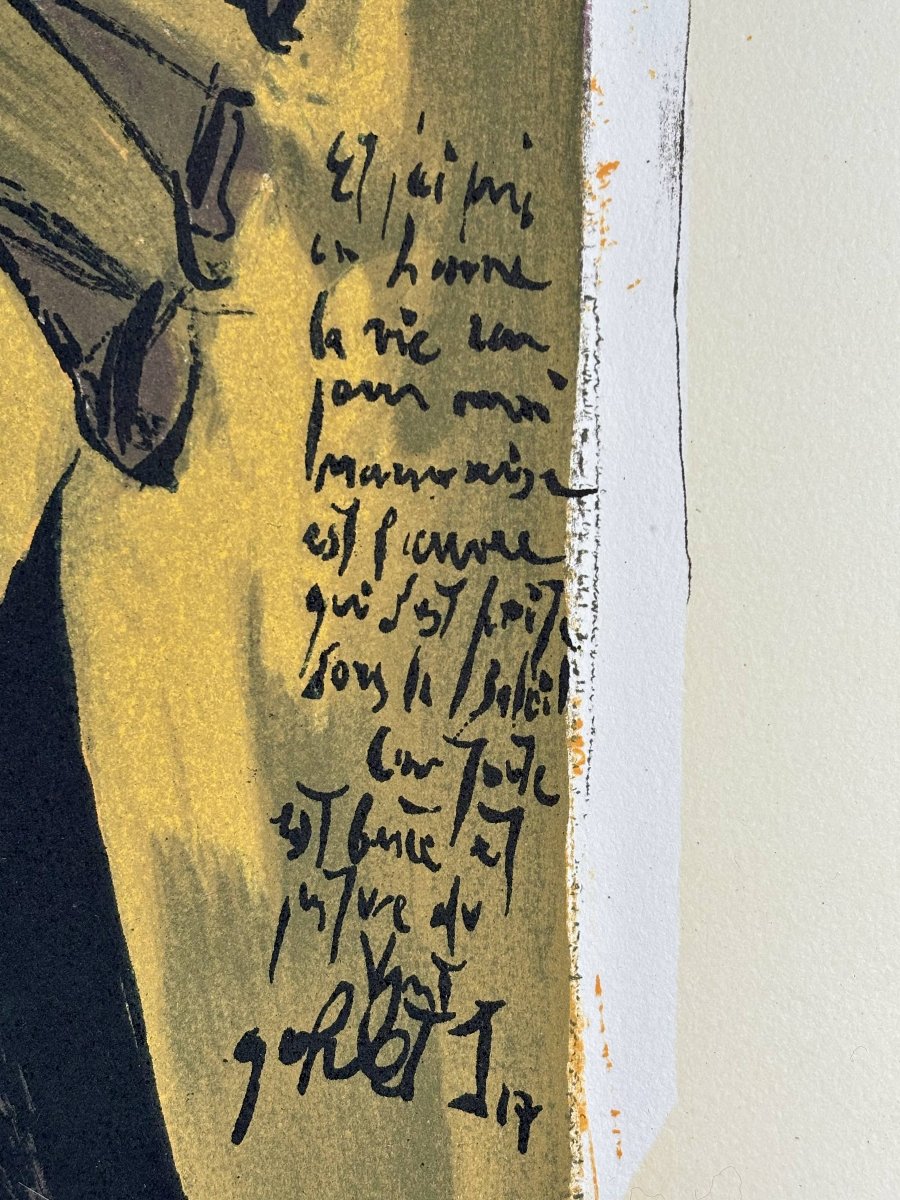 Et j'ai pris
en haine
la vie car
pour moi
mauvaise
est l'œuvre
qui s'est faite
sous le soleil
Car toute
est buée et
pâture du
Vent
qohélet 2 17